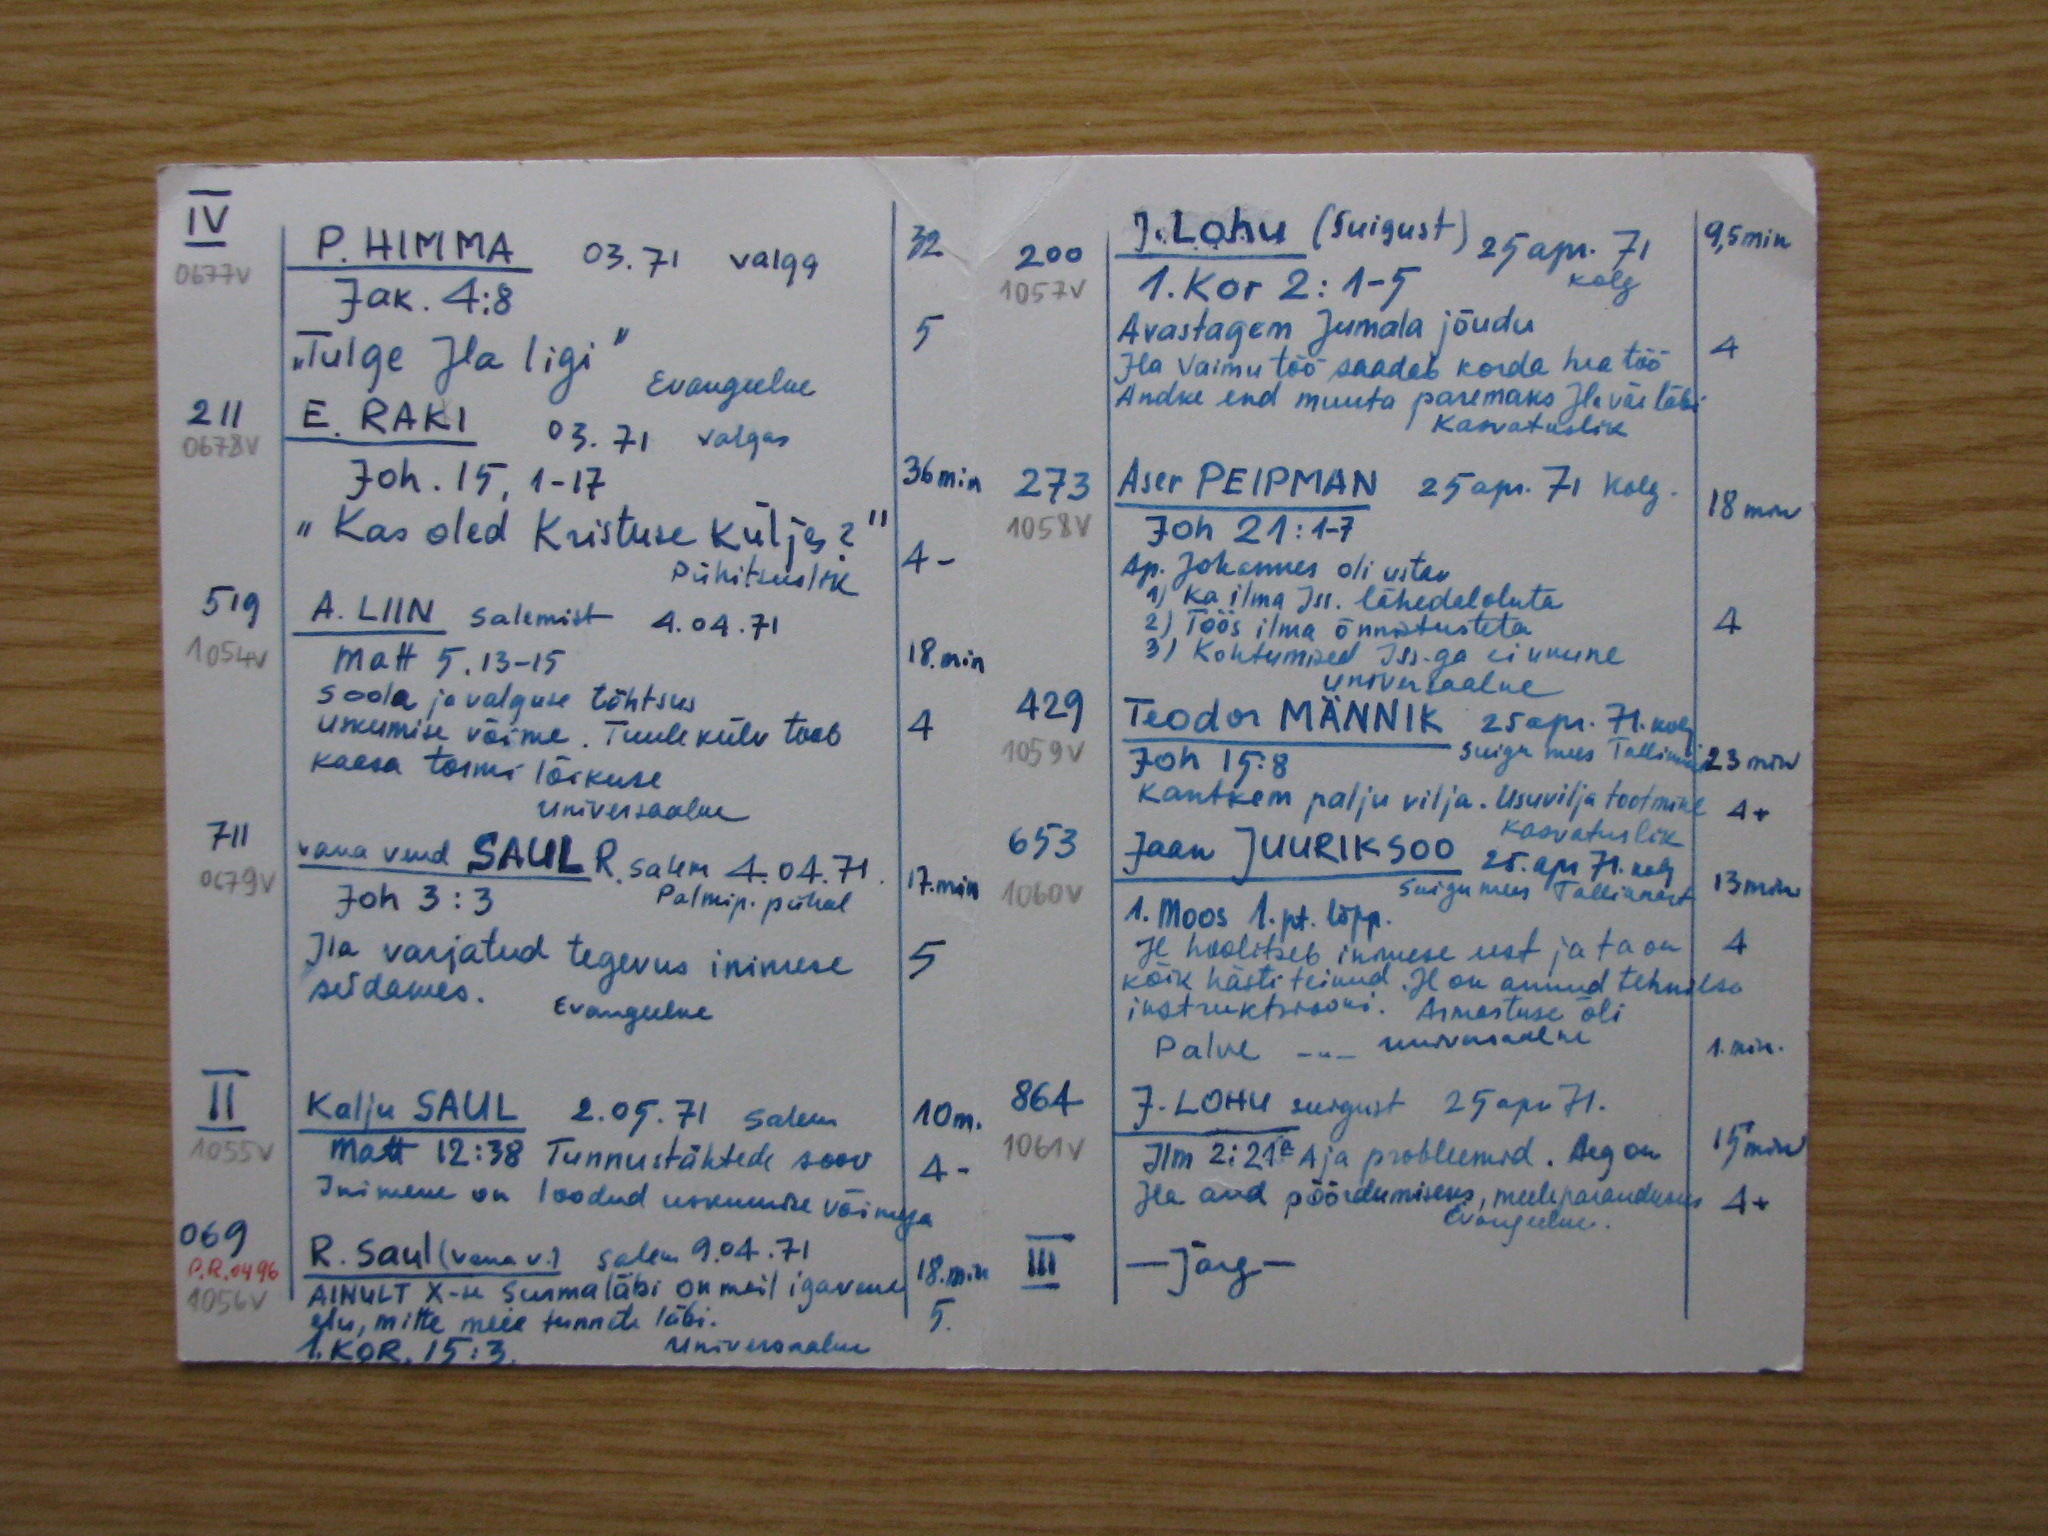 IV
0677V
P. HIMMA 03.71 Valga 32
Jak. 4:8
„Tulge Jla ligi" 5
Evangeelne
211
0678V
E. RAKI 03.71 Valgas
Joh. 15, 1-17 36min
"Kas oled Kristuse küljes?"
4-
Pühitsuslik
519
1054V
A. LIIN Salemist 4.04.71
Matt 5.13-15 18.min
Soola ja valguse tähtsus
uskumise võime. Tuulekülv toob 4
kaasa tormi lõikuse
universaalne
711
0679V
vana vend SAUL R. Salem 4.04.71.
Joh 3:3 Palmip. pühal 17.min
Jla varjatud tegevus inimese 5
südames.
Evangeelne
II
1055V
Kalju SAUL 2.05.71 Salem 10m.
Matt 12:38 Tunnustähtede soov 4-
Inimene on loodud uskumise võimega
069
P.R.0496
1056V
R. Saul (vana v.) Salem 9.04.71
AINULT X-se Surma läbi on meil igavene 18.min
elu, mitte meie tunnete läbi. 5.
1.KOR. 15:3. Universaalne
200
1057V
J. Lohu (Suigust) 25 apr. 71 9,5min
1.Kor 2: 1-5 kolg
Avastagem Jumala jõudu 4
Jla Vaimu töö saadab korda hea töö
Andke end muuta paremaks Jla väe läbi
Kasvatuslik
273
1058V
Aser PEIPMAN 25 apr. 71 kolg. 18 min
Joh 21: 1-7
Ap. Johannes oli ustav
1) Ka ilma Iss. lähedaloluta
2) Töös ilma õnnistusteta 4
3) Kohtumised Iss-ga ei unune
universaalne
429
1059V
Teodor MÄNNIK 25 apr. 71. kolg
Suigu mees 23 min
Joh 15:8
Kantkem palju vilja. Usuvilja tootmine 4+
Kasvatuslik
653
1060V
Jaan JUURIKSOO 25. apr 71. kolg
Suigu mees Tallinnast 13 min
1. Moos 1. pt. lõpp.
Jl hoolitseb inimese eest ja ta on 4
kõik hästi teinud. Jl on annud tehnilse
instruktsiooni. Armastuse õli
Palve -"- universaalne 1. min.
864
1061V
J. LOHU suigust 25 apr 71.
Ilm 2:21a Aja probleemid. Aeg on 15 min
Jla and pöördumiseks, meeleparanduseks 4+
Evangeelne.
III —Järg—